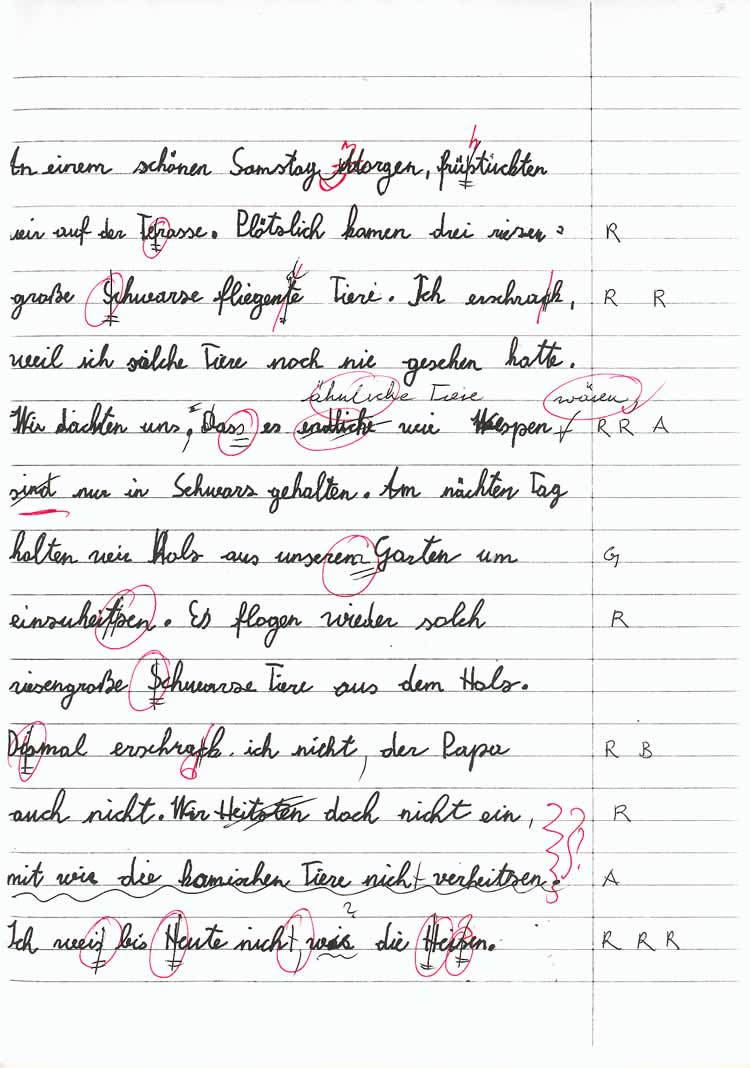 An einem schönen Samstag Morgen, früstückten
wir auf der Terasse. Plötzlich kamen drei riesen- R
große Schwarze fliegente Tiere. Ich erschrak, R R
weil ich solche Tiere noch nie gesehen hatte.
ähnliche Tiere wären,
Wir dachten uns, Dass es endliche wie Wespen R R A
sind nur in Schwarz gehalten. Am nächten Tag
holten wir Holz aus unserem Garten um G
einzuheitzen. Es flogen wieder solch R
riesengroße Schwarze Tiere aus dem Holz.
Dismal erschrak ich nicht, der Papa R B
auch nicht. Wir Heitzten doch nicht ein, R
mit wir die komischen Tiere nicht verheitzen. A
?
Ich weis bis Heute nicht, wie die Heisen. R R R